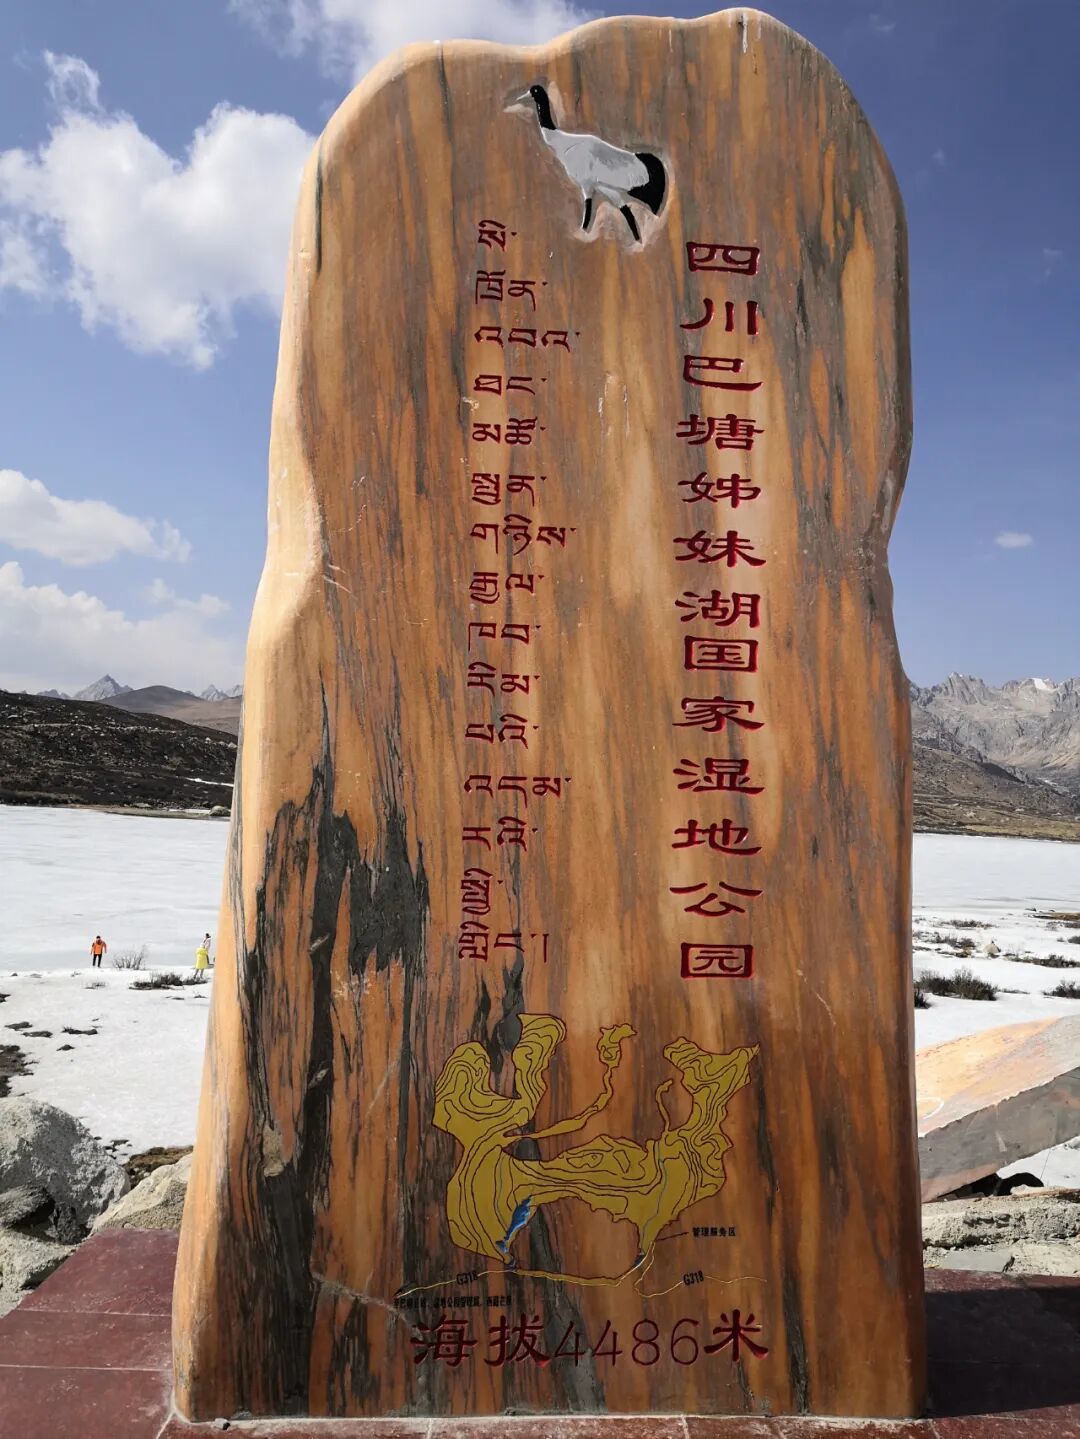 四川巴塘姊妹湖国家湿地公园
སི་
ཁྲོན་
འབའ་
ཐང་
མཚོ་
སྤུན་
གཉིས་
རྒྱལ་
ཁབ་
རིམ་
པའི་
འདམ་
རའི་
སྤྱི་
གླིང་།
管理服务区
G318
G318
海拔4486米